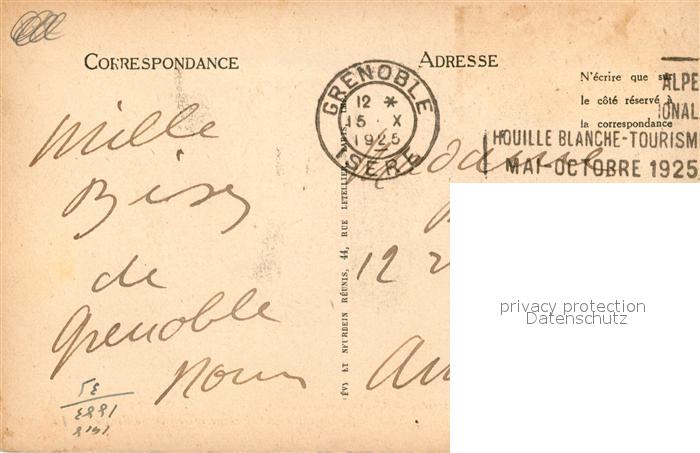 CORRESPONDANCE
ADRESSE
N'écrire que sur
le côté réservé à
la correspondance
GRENOBLE
12 *
15 X
1925
ISÈRE
ALPE
IONAL
HOUILLE BLANCHE-TOURISM
MAI-OCTOBRE 1925
Mille
Bises
de
Grenoble
Madame
12
LÉVY ET NEURDEIN RÉUNIS, 44, RUE LETELLIER, PARIS
privacy protection
Datenschutz